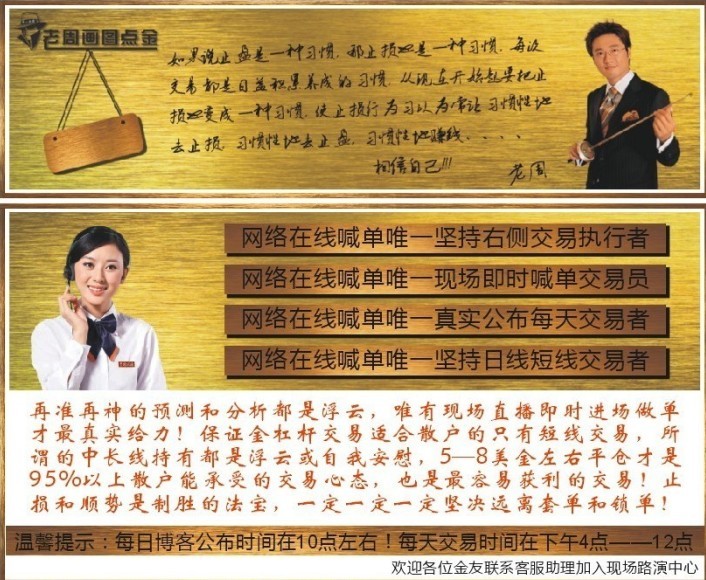 老周画图点金
如果说止盈是一种习惯，那止损也是一种习惯，每次
交易都是日益积累养成的习惯，从现在开始起要把止
损也变成一种习惯，使止损行为习以为常让习惯性地
去止损，习惯性地去止盈，习惯性地赚钱....
相信自己!!!
老周
网络在线喊单唯一坚持右侧交易执行者
网络在线喊单唯一现场即时喊单交易员
网络在线喊单唯一真实公布每天交易者
网络在线喊单唯一坚持日线短线交易者
再准再神的预测和分析都是浮云，唯有现场直播即时进场做单
才最真实给力！保证金杠杆交易适合散户的只有短线交易，所
谓的中长线持有都是浮云或自我安慰，5—8美金左右平仓才是
95%以上散户能承受的交易心态，也是最容易获利的交易！止
损和顺势是制胜的法宝，一定一定一定坚决远离套单和锁单！
温馨提示：每日博客公布时间在10点左右！每天交易时间在下午4点——12点
欢迎各位金友联系客服助理加入现场路演中心